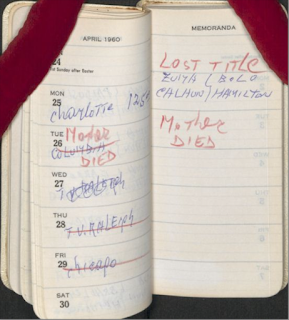 APRIL 1960
24
1st Sunday after Easter
MON
25
Charlotte 125
TUE
26
Mother
Columbia
DIED
WED
27
T.V. RALEIGH
THU
28
T.V. RALEIGH
FRI
29
Chicago
SAT
30
MEMORANDA
LOST TITLE
CALHUN) HAMILTON
Mother
DIED